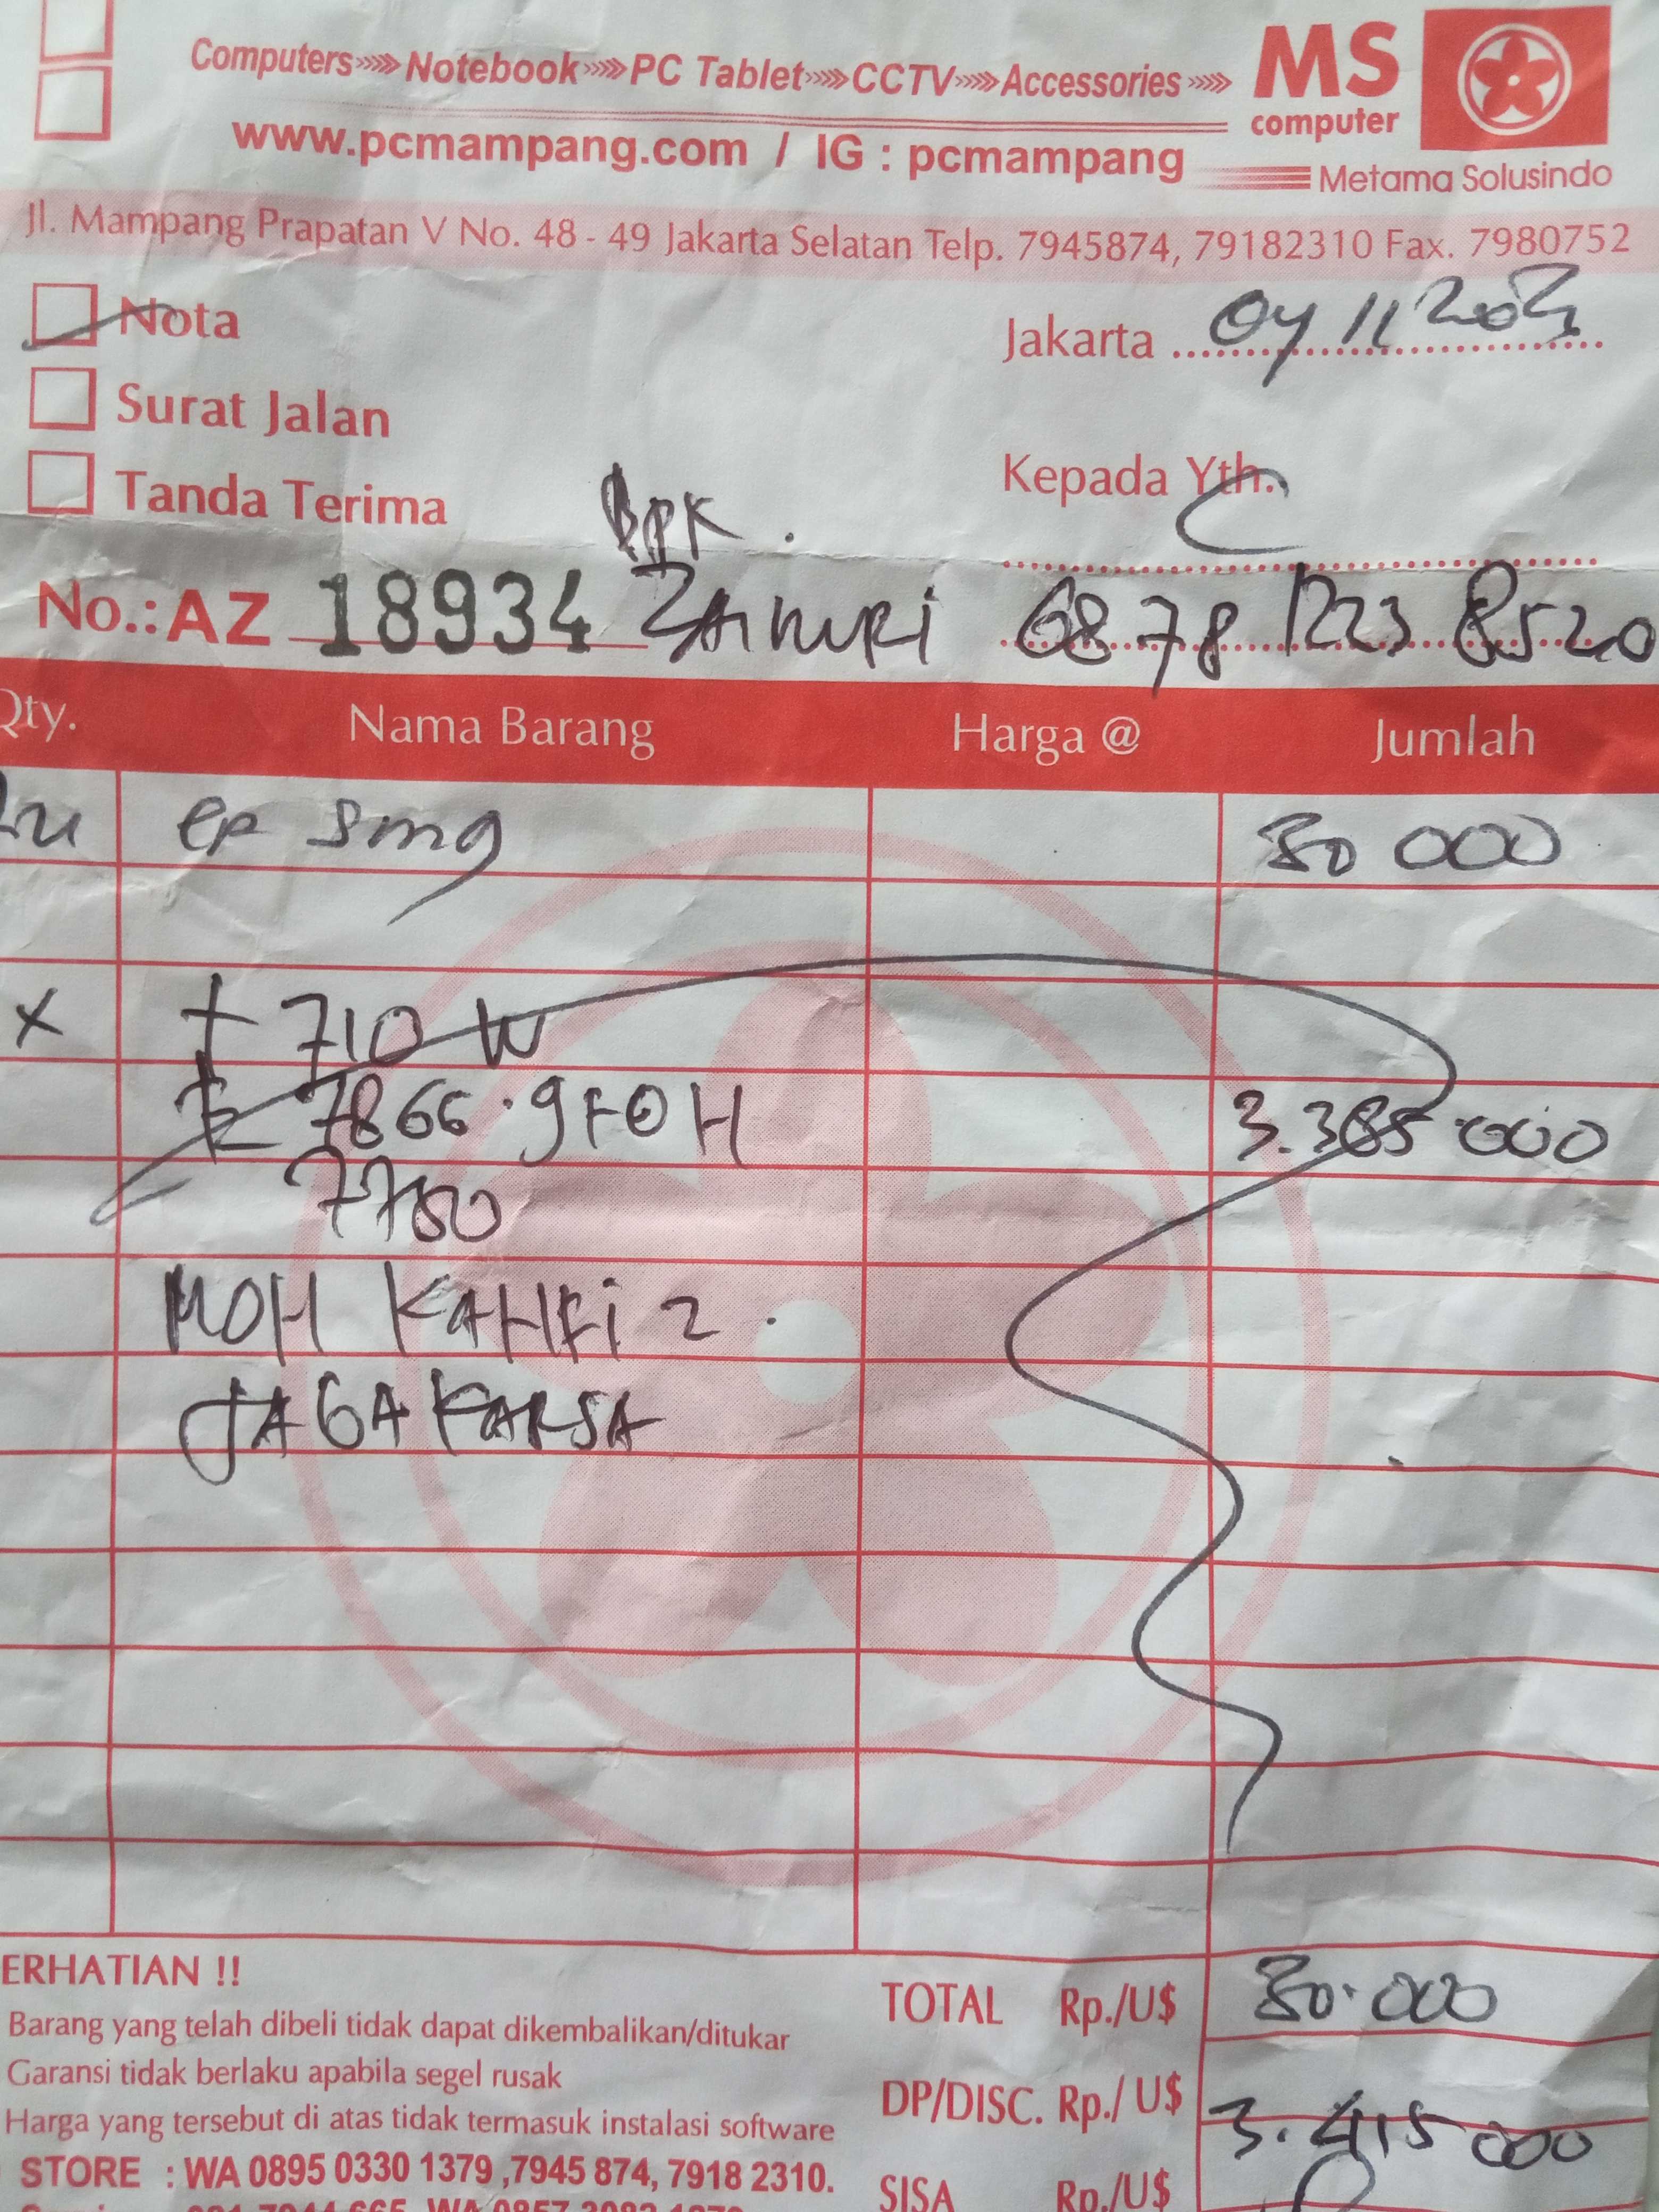 Computers Notebook PC Tablet CCTV Accessories
MS
computer
www.pcmampang.com / IG : pcmampang
Metama Solusindo
Jl. Mampang Prapatan V No. 48 - 49 Jakarta Selatan Telp. 7945874, 79182310 Fax. 7980752
Nota
Jakarta 04 11
Surat Jalan
Kepada Yth.
Tanda Terima
BPK.
No.: AZ 18934 ZAINURI 0878 1223 8520
Qty. Nama Barang Harga @ Jumlah
ep smg 30 000
x T 710 W
7866.9FOH 3.385.000
7780
MOH KAHFI 2.
JAGAKARSA
ERHATIAN !!
TOTAL Rp./U$ 30.000
Barang yang telah dibeli tidak dapat dikembalikan/ditukar
Garansi tidak berlaku apabila segel rusak
DP/DISC. Rp./ U$ 3.415 000
Harga yang tersebut di atas tidak termasuk instalasi software
STORE : WA 0895 0330 1379 ,7945 874, 7918 2310.
SISA Rp./U$